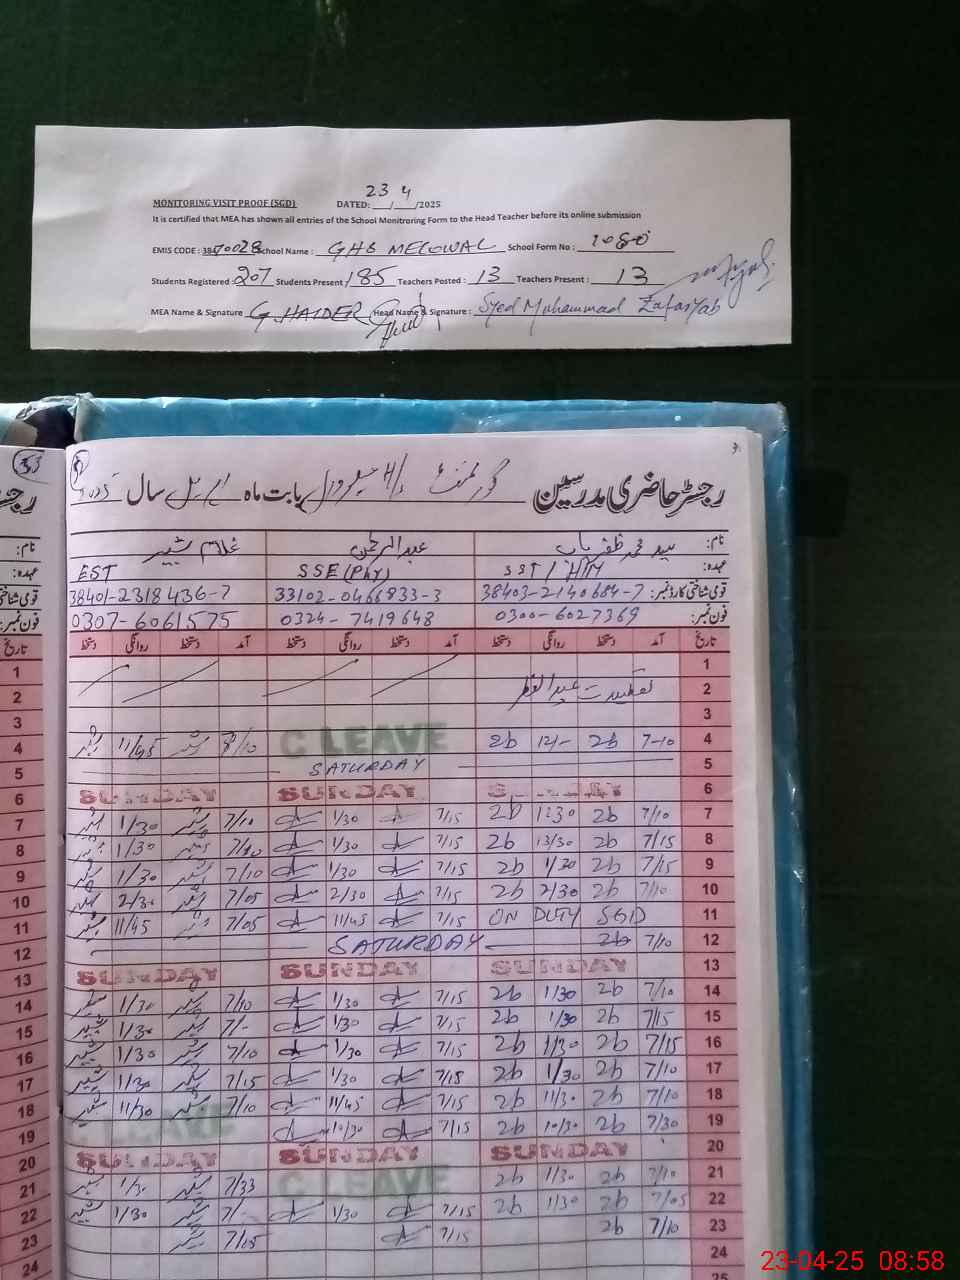 23 4
MONITORING VISIT PROOF (SGD) DATED: __/__/2025
It is certified that MEA has shown all entries of the School Monitroring Form to the Head Teacher before its online submission
EMIS CODE : School Name : GHS MELOWAL School Form No : 1080
Students Registered : 207 Students Present 185 Teachers Posted : 13 Teachers Present : 13
MEA Name & Signature G. HAIDER Head Name & Signature : Syed Muhammad Zafaryab
رجسٹر حاضری مدرسین گورنمنٹ بابت ماہ اپریل سال
نام: سید محمد ظفریاب عبدالرحمن غلام شبیر
عہدہ: SST / HM SSE (Phy) EST
قومی شناختی کارڈ نمبر: 38403-2140684-7 33102-0466833-3 38401-2318436-7
فون نمبر: 0300-6027369 0324-7419648 0307-6061575
تاریخ آمد دستخط روانگی دستخط آمد دستخط روانگی دستخط
1
2 تعطیلات عیدالفطر
3
4 7-10 2b 12/- 2b C LEAVE 8/10 11/45
5 SATURDAY
6 SUNDAY SUNDAY SUNDAY
7 7/10 2b 1:30 2b 7/15 1/30 7/10 1/30
8 7/15 2b 2b 7/15 1/30 7/10 1/30
9 7/15 2b 1/30 2b 7/15 1/30 7/10 1/30
10 7/10 2b 2/30 2b 7/15 2/30 7/05 2/30
11 ON DUTY SGD 7/15 11/45 7/05 11/45
12 7/10 2b SATURDAY
13 SUNDAY SUNDAY SUNDAY
14 7/10 2b 1/30 2b 7/15 1/30 7/10 1/30
15 7/15 2b 1/30 2b 7/15 1/30 7/- 1/30
16 7/15 2b 1/30 2b 7/15 1/30 7/10 1/30
17 7/10 2b 1/30 2b 7/15 1/30 7/15 1/30
18 7/10 2b 11/30 2b 7/15 11/45 7/10 11/30
19 7/30 2b 10/30 2b 7/15 10/30 C LEAVE
20 SUNDAY SUNDAY SUNDAY
21 7/10 2b 1/30 2b C LEAVE 7/33 1/30
22 7/05 2b 1/30 2b 7/15 1/30 7/- 1/30
23 7/10 2b 7/15 7/05
24
25
23-04-25 08:58